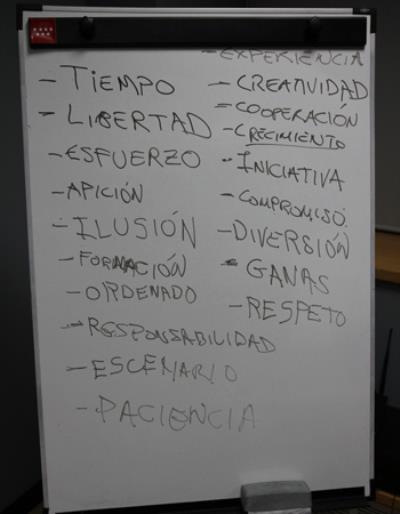 - TIEMPO
- LIBERTAD
- ESFUERZO
- APICIÓN
- ILUSIÓN
- FORMACIÓN
- ORDENADO
- RESPONSABILIDAD
- ESCENARIO
- PACIENCIA
- EXPERIENCIA
- CREATIVIDAD
- COOPERACIÓN
- CRECIMIENTO
- INICIATIVA
- COMPROMISO
- DIVERSIÓN
- GANAS
- RESPETO